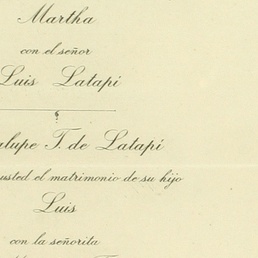 Martha
con el señor
Luis Latapí
T. de Latapí
usted el matrimonio de su hijo
Luis
con la señorita